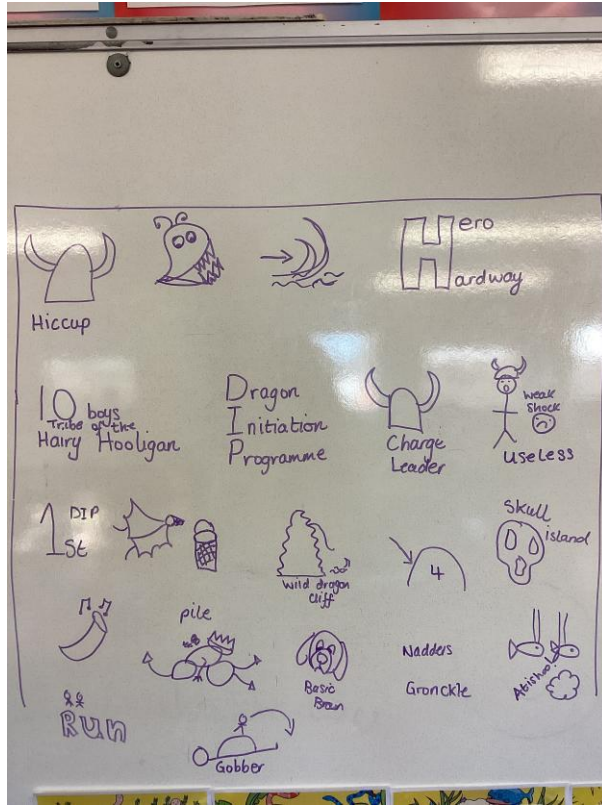 Hero
Hardway
Hiccup
10 boys
Tribe of the
Hairy Hooligan
Dragon
Initiation
Programme
Charge
Leader
weak
shock
useless
1st DIP
wild dragon
cliff
4
Skull
island
pile
Basic
Brown
Nadders
Gronckle
Atishoo!
Run
Gobber